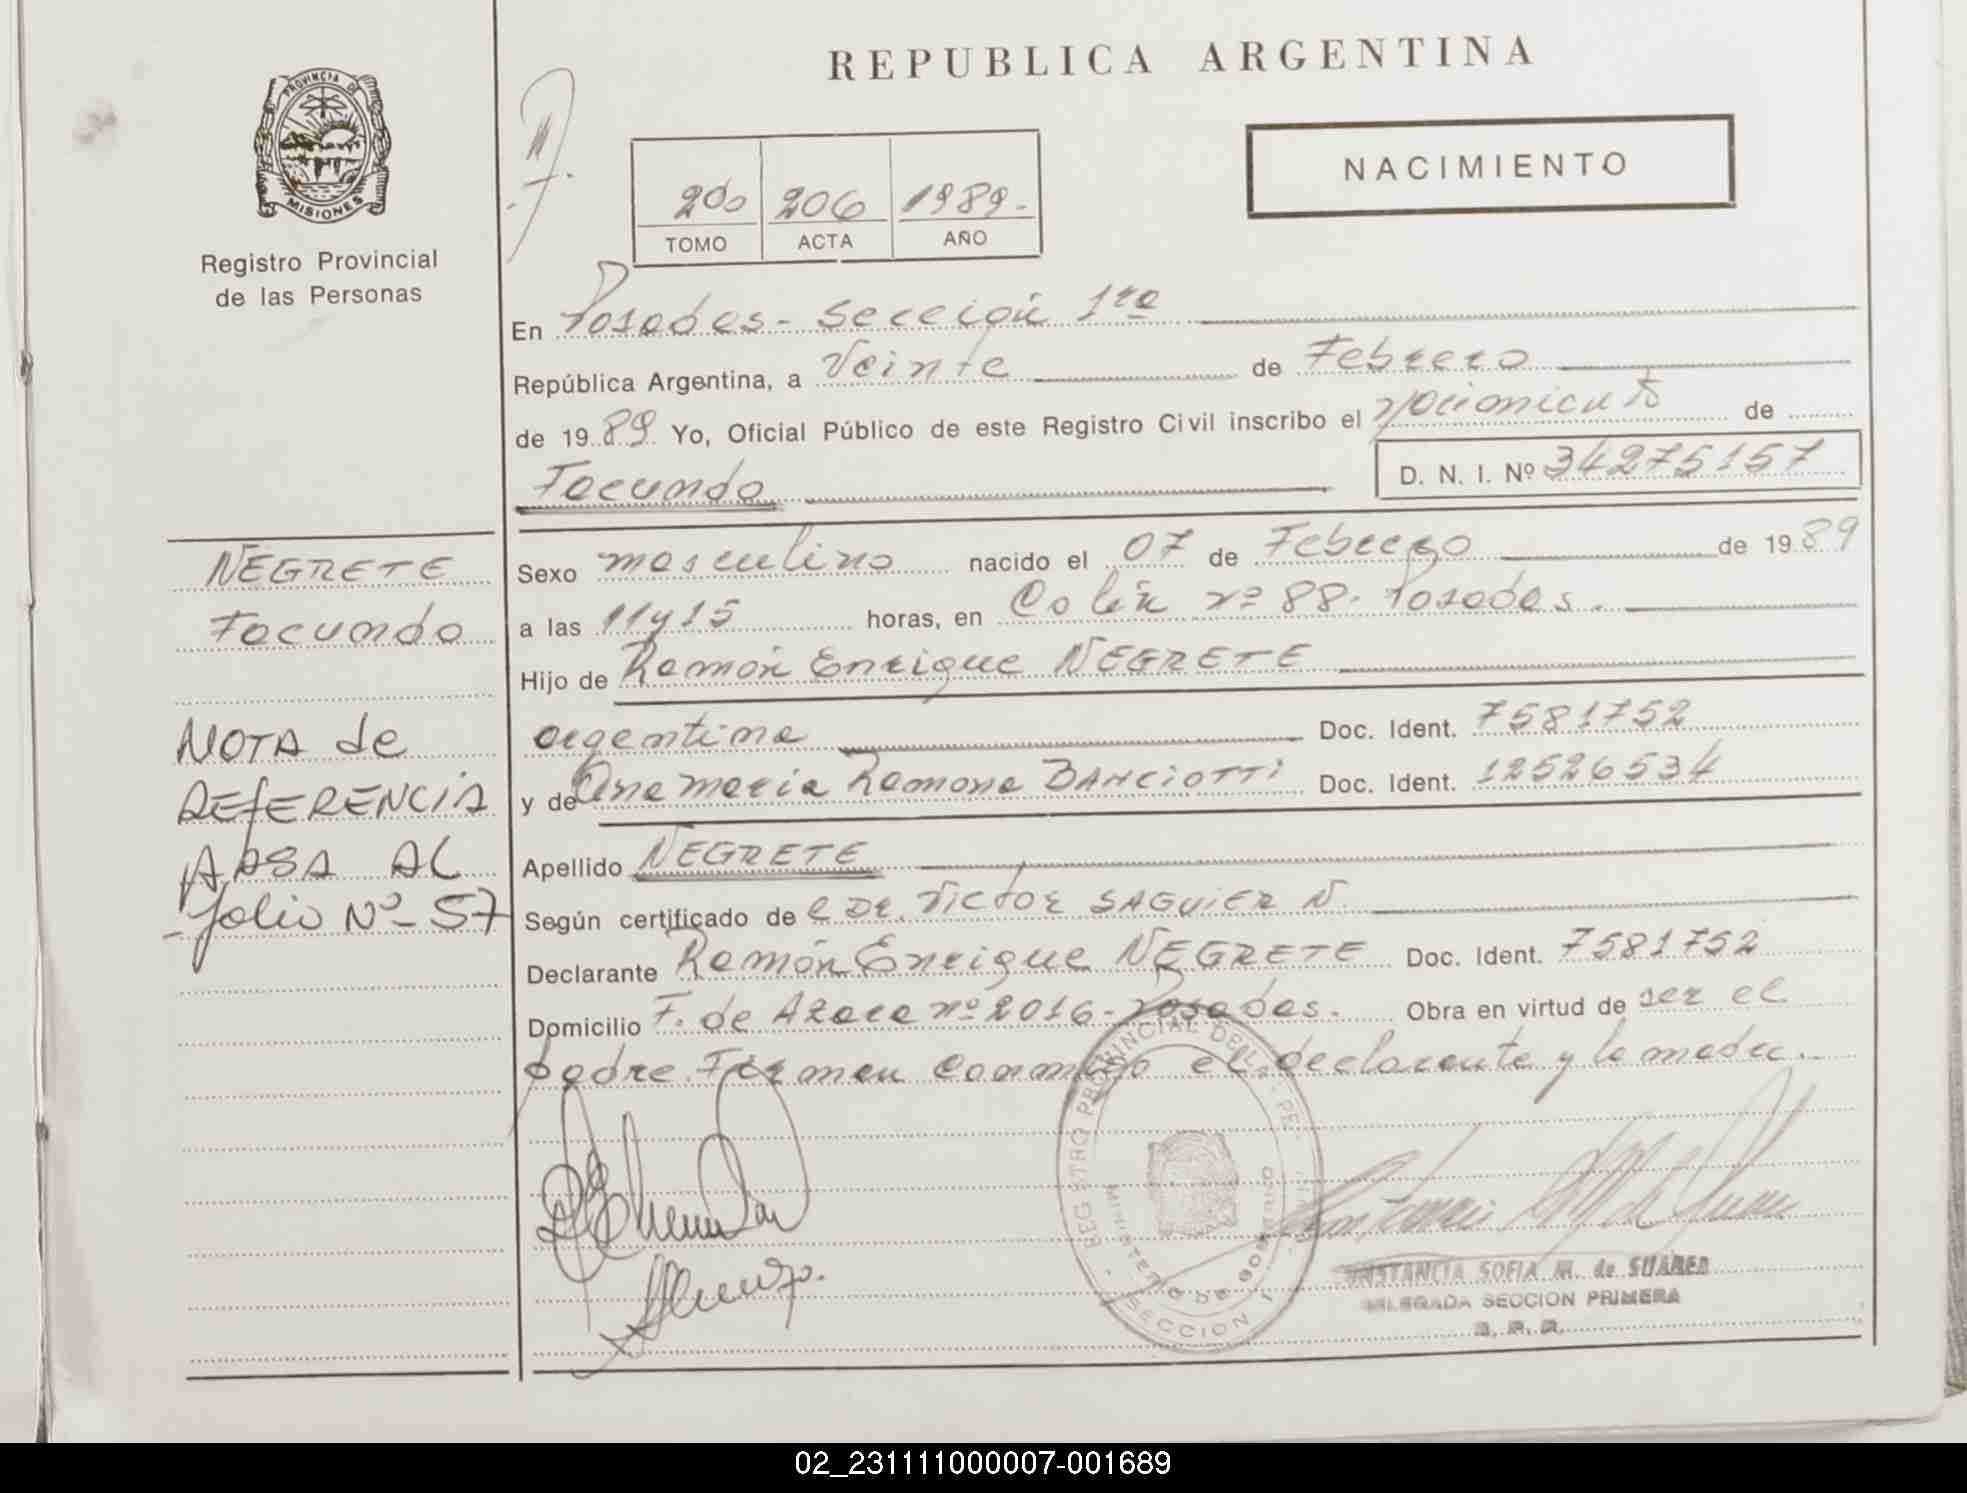 REPUBLICA ARGENTINA
PROVINCIA DE
MISIONES
Registro Provincial
de las Personas
NACIMIENTO
200 206 1989.-
TOMO ACTA AÑO
En Posadas - Sección 1ra
República Argentina, a Veinte de Febrero
de 1989 Yo, Oficial Público de este Registro Civil inscribo el nacimiento de
Facundo D. N. I. Nº 34275157
NEGRETE
Facundo
NOTA de
REFERENCIA
PASA AL
folio Nº - 57
Sexo masculino nacido el 07 de Febrero de 1989
a las 11 y 15 horas, en Colón nº 88. Posadas.
Hijo de Ramón Enrique NEGRETE
argentina Doc. Ident. 7581752
y de Ana María Ramona BANCIOTTI Doc. Ident. 12526534
Apellido NEGRETE
Según certificado de e DR. Victor SAGUIER N.
Declarante Ramón Enrique NEGRETE Doc. Ident. 7581752
Domicilio F. de Azara nº 2016 - Posadas. Obra en virtud de ser el
padre. Firman conmigo el declarante y la madre.-
REGISTRO PROVINCIAL DE LAS PER
MINISTERIO DE GOBIERNO
SECCION 1
CONSTANCIA SOFIA M. de SUAREZ
DELEGADA SECCION PRIMERA
R. P. P.
02_231111000007-001689